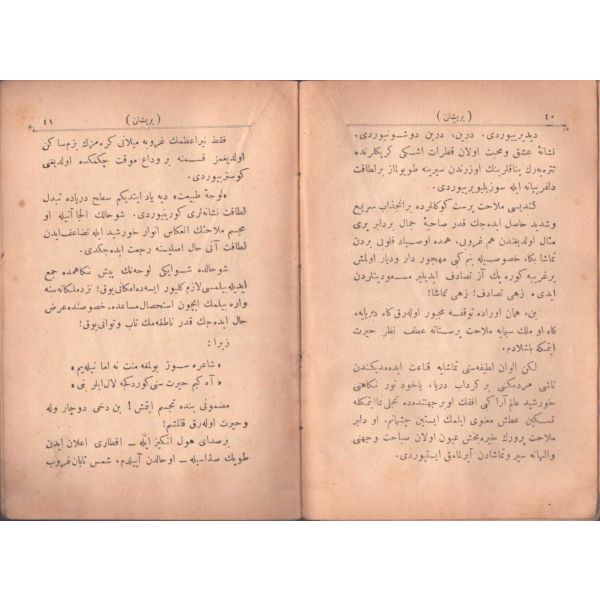 ٤٠
( پریشان )
دیدیریبیوردی. درین، درین دوشونیوردی.
نشانهٔ عشق و محبت اولان قطرات اشکی کرپکلرنده
تتره‌یه‌رك یناقلرینك اوزرندن سیرینه طویولماز برلطافت
دلفریبانه ایله سوزیلیویریبیوردی.
کندیسی ملاحت پرست کوکللرده برانجذاب سریع
وشدید حاصل ایده‌جك قدر صاحبهٔ جمال بردلبر پری
مثال اولدیغندن هم غروبی، همده اوسیاه قلونی بردن
تماشا بکا، خصوصیله بنم کبی مهجور دار ودیار اولمش
برغریبه کوره پك آز تصادف ایدیلیر مسعودیتلردن
ایدی. زهی تصادف! زهی تماشا!
بن، همان اوراده توقفه مجبور اوله‌رق کاه دریایه،
کاه او ملك سیمایه ملاحت پرستانه عطف نظر حیرت
ایتمکه باشلادم.
لکن الوان لطیفه‌سی تماشایه قناعت ایده‌مدیکندن
ناشی هردمکی بر کرداب دریا، یاخود نور نکاهی
خورشید عالم آرا کبی افقك اوجهتنده‌ده تجلی نما ایتمکله
تسکین عطش معنوی ایلمك ایستین چشمانم. او دلبر
ملاحت پرورك خیره‌بخش عیون اولان صباحت وجهنی
والهانه سیر وتماشادن آیرلمامق ایستیوردی.
٤١
( پریشان )
فقط نیراعظمك غروبه میلانی کره‌مزك بزم ساکن
اولدیغمز قسمنه بروداع موقت چکمکده اولدیغنی
کوستریبوردی.
«لوحهٔ طبیعت» دیه یاد ایتدیکم سطح دریاده تبدل
لطافت نشانه‌لری کورینیوردی. شوحالك الجا آتیله او
مجسم ملاحتك انعکاس انوار خورشید ایله تضاعف ایدن
لطافت آنی حال اصلیسنه رجعت ایده‌جکدی.
شوحالده شوایکی لوحه‌نك پیش نکاهمده جمع
ایدیله بیلمسی لازم کلیور ایسه‌ده امکانی یوق! نزد ملکانه‌سنه
واره بیلمك ایچون استحصال مساعده، خصوصنده عرض
حال ایده‌جك قدر ناطقه‌مك تاب وتوانی یوق!
زیرا:
« شاعره سوز بولمغه منت نه اما نیله‌یم »
« آه کیم حیرت سنی کوردکجه لال ایلر بنی »
مضمونی بنده تجسم ایتمش! بن دخی دوچار وله
وحیرت اوله‌رق قالمشم!
برصدای هول انکیز ایله ــ افطاری اعلان ایدن
طوپك صداسیله ــ اوحالدن آییلدم. شمس تابان غروب